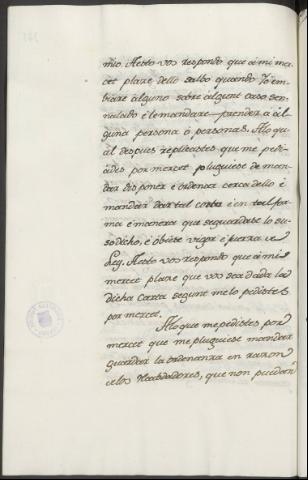 mio. Aesto vos respondo que á mi mer-
cet plaze dello salbo quando Yo em-
biare á alguno sobre algunt caso sen-
nalado é le mandare prender á al-
guna persona ó personas. Alo qu
al despues replicastes que me pedi-
ades por mercet pluguiese de man-
dar disponer é ordenar cerca dello é
mandar dar tal carta é en tal for-
ma é manera que se guardase lo su-
sodicho, é obiese vigor é fuerza de
Ley. Aesto vos respondo que á mi
mercet plaze que vos sea dada la
dicha Carta segunt me lo pedistes
por mercet.
Alo que me pedistes por
mercet que me pluguiese mandar
guardar la ordenanza en razon
de los Recabdadores, que non puedan